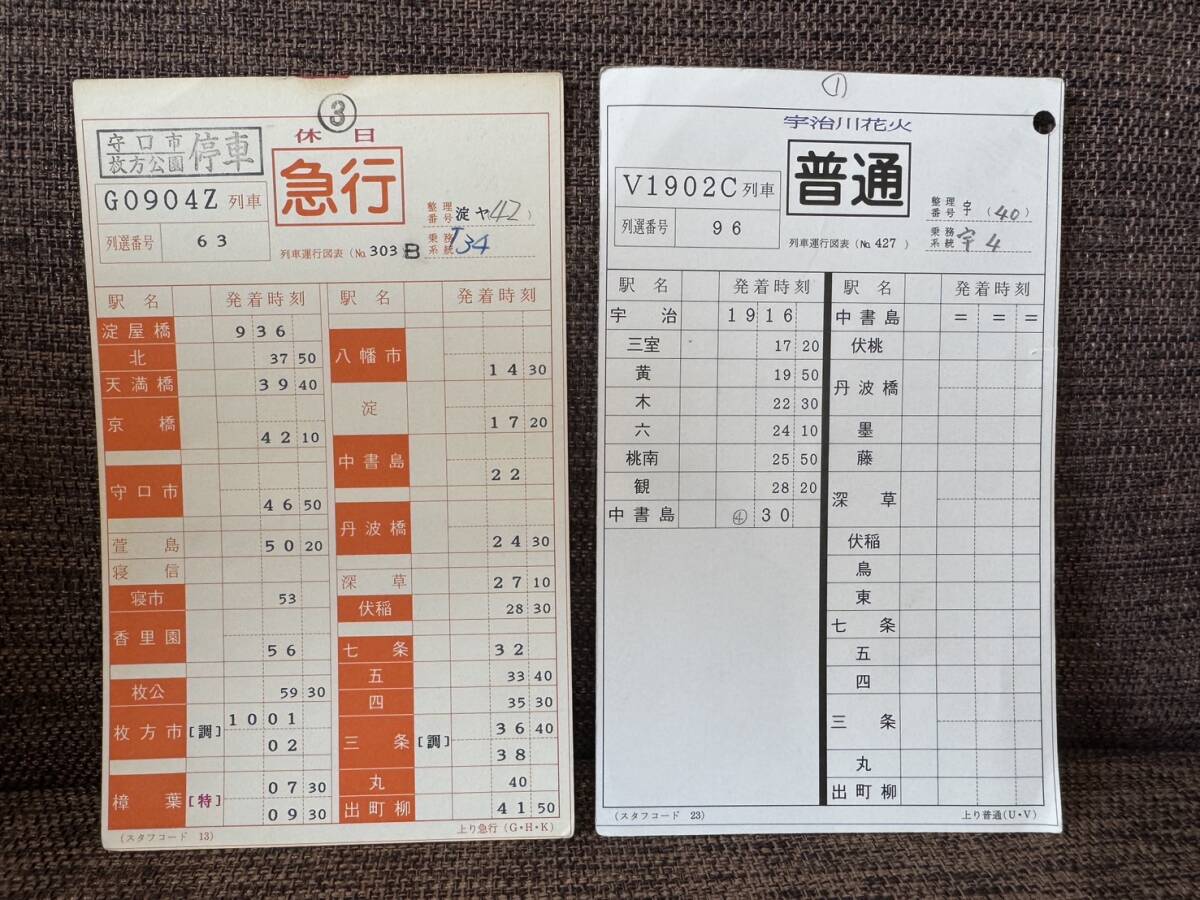 ③
休日
守口市
枚方公園 停車
急行
G0904Z 列車
整理番号 淀ヤ42)
列選番号 63
列車運行図表 (No. 303 B
乗務系統 T34
駅名 発着時刻
淀屋橋 936
北 37 50
天満橋 39 40
京橋 42 10
守口市 46 50
萱島 50 20
寝信
寝市 53
香里園 56
枚公 59 30
枚方市 [調] 1001
02
樟葉 [特] 07 30
09 30
(スタフコード 13)
駅名 発着時刻
八幡市 14 30
淀 17 20
中書島 22
丹波橋 24 30
深草 27 10
伏稲 28 30
七条 32
五 33 40
四 35 30
三条 [調] 36 40
38
丸 40
出町柳 41 50
上り急行 (G・H・K)
①
宇治川花火
普通
V1902C 列車
整理番号 宇 (40)
列選番号 96
列車運行図表 (No. 427 )
乗務系統 宇4
駅名 発着時刻
宇治 1916
三室 17 20
黄 19 50
木 22 30
六 24 10
桃南 25 50
観 28 20
中書島 ④ 30
(スタフコード 23)
駅名 発着時刻
中書島 = = =
伏桃
丹波橋
墨
藤
深草
伏稲
鳥
東
七条
五
四
三条
丸
出町柳
上り普通(U・V)